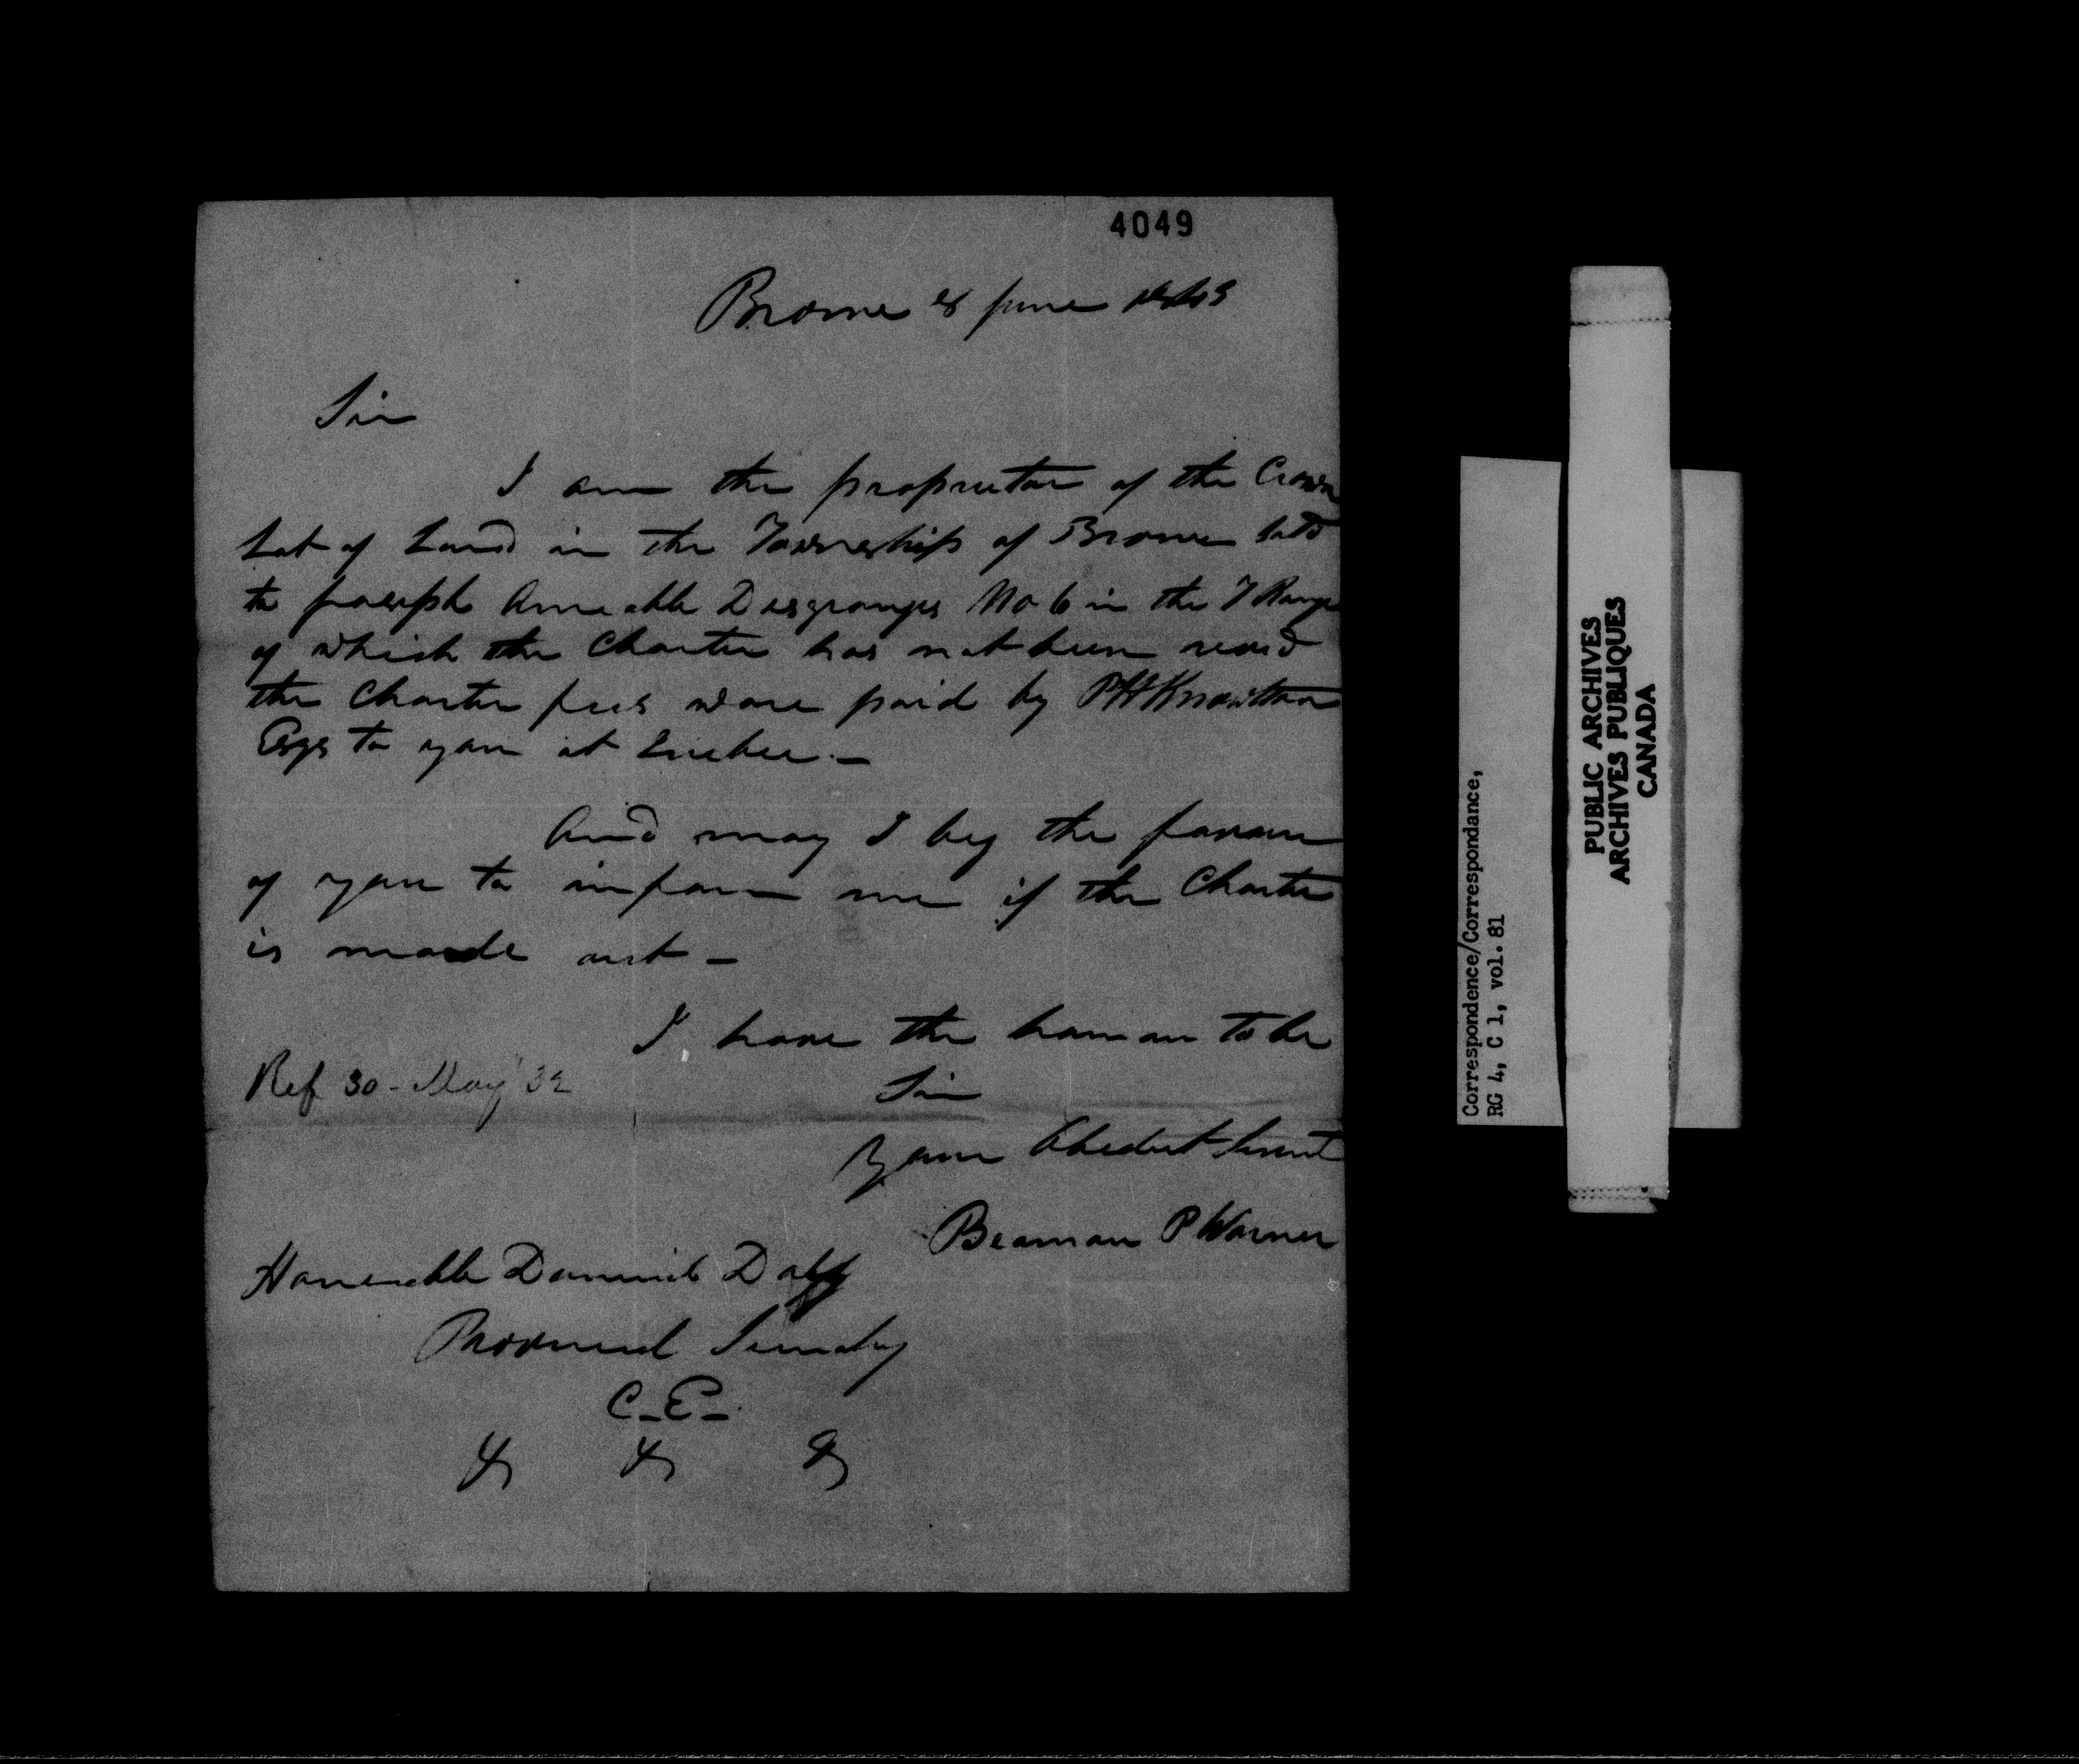 4049
Brome 8 June 1843
Sir
I am the proprietor of the Crown
Lot of Land in the Township of Brome sold
to Joseph Ameable Desgroups No 6 in the 7 Range
of which the Charter has not been recd
the Charter fees ware paid by P H Knowlton
Esqr to you at Quebec. —
And may I beg the favour
of you to inform me if the Charter
is made out —
I have the honour to be
Ref 30 - May 32
Sir
Your Obedient Servant
Beaman P Warner
Honerable Daminik Daly
Provincial Secretary
C - E -
& & &
Correspondence/Correspondance,
RG 4, C 1, vol. 81
PUBLIC ARCHIVES
ARCHIVES PUBLIQUES
CANADA